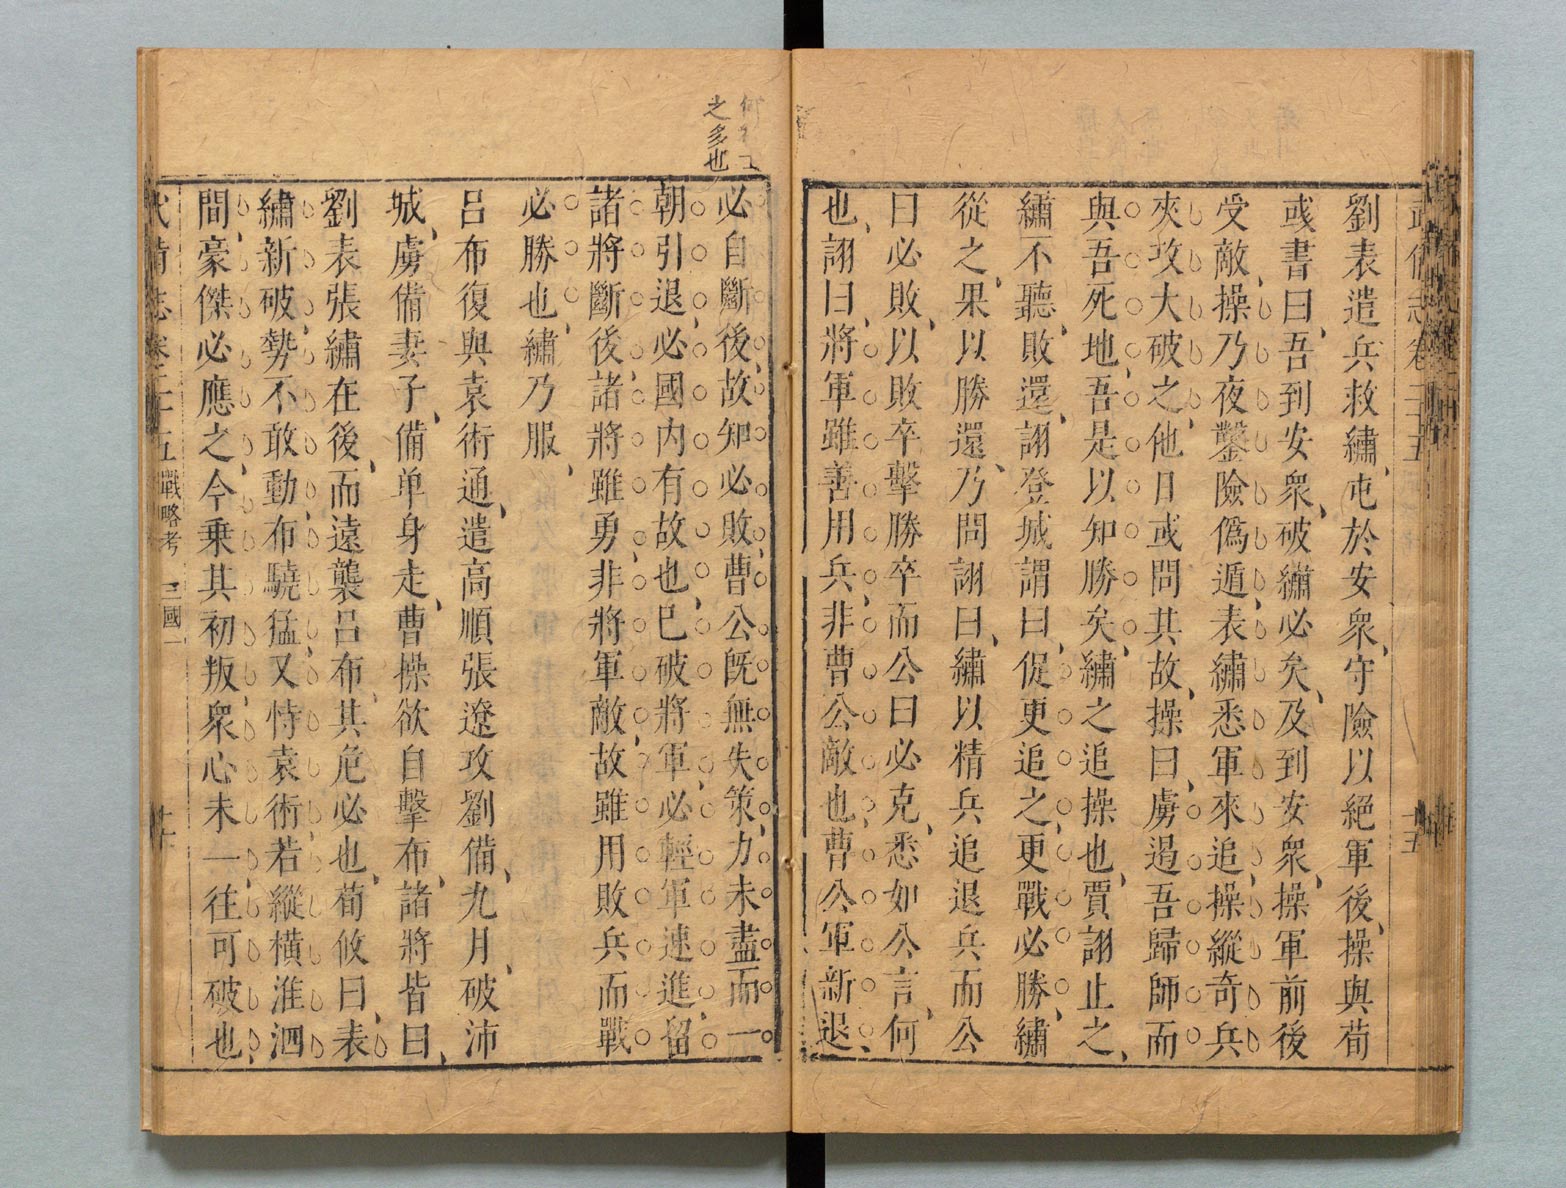 武備志卷二十五
十五
劉表遣兵救繡、屯於安衆、守險以絕軍後、操與荀
彧書曰、吾到安衆、破繡必矣、及到安衆、操軍前後
受敵、操乃夜鑿險偽遁、表繡悉軍來追、操縱奇兵
夾攻大破之、他日彧問其故、操曰、虜遏吾歸師而
與吾死地、吾是以知勝矣、繡之追操也、賈詡止之、
繡不聽、敗還、詡登城謂曰、促更追之、更戰必勝、繡
從之、果以勝還、乃問詡曰、繡以精兵追退兵而公
曰必敗、以敗卒擊勝卒而公曰必克、悉如公言、何
也、詡曰、將軍雖善用兵、非曹公敵也、曹公軍新退、
之多也
必自斷後、故知必敗、曹公既無失策、力未盡而一
朝引退、必國内有故也、已破將軍、必輕軍速進、留
諸將斷後、諸將雖勇、非將軍敵、故雖用敗兵而戰
必勝也、繡乃服、
呂布復與袁術通、遣高順張遼攻劉備、九月、破沛
城、虜備妻子、備单身走、曹操欲自擊布、諸將皆曰、
劉表張繡在後、而遠襲呂布、其危必也、荀攸曰、表
繡新破、勢不敢動、布驍猛、又恃袁術、若縱橫淮泗
間、豪傑必應之、今乗其初叛、衆心未一、往可破也、
武備志卷二十五 戰略考 三國一